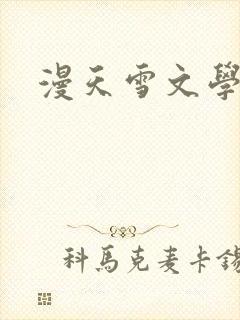 漫天雪文學
科馬克麦卡錫